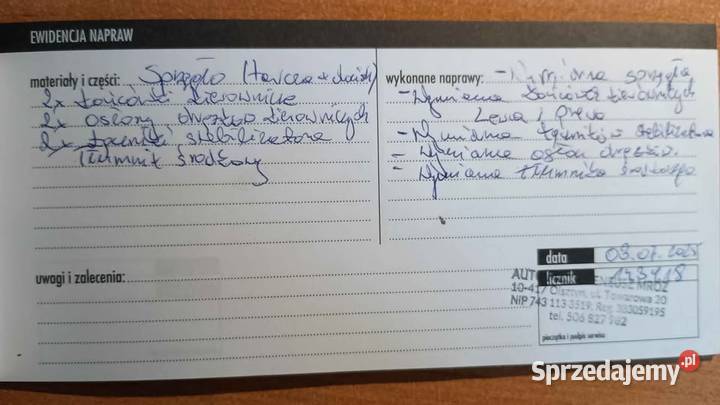 EWIDENCJA NAPRAW
materiały i części: Sprzęgło (tarcza + docisk)
2x końcówki kierownicze
2x osłony drążków kierowniczych
2x łączniki stabilizatora
Tłumnik środkowy
wykonane naprawy: - Wymiana sprzęgła
- Wymiana końcówek kierowniczych
Lewa i prawa
- Wymiana łączników stabilizatora
- Wymiana osłon drążków
- Wymiana tłumnika środkowego
uwagi i zalecenia:
data 03.07.2025
licznik 173418
AUTO MROZ
10-417 Olsztyn, ul. Towarowa 20
NIP 743 113 3519, Reg. 383059195
tel. 506 827 962
pieczątka i podpis serwisu
Sprzedajemy.pl